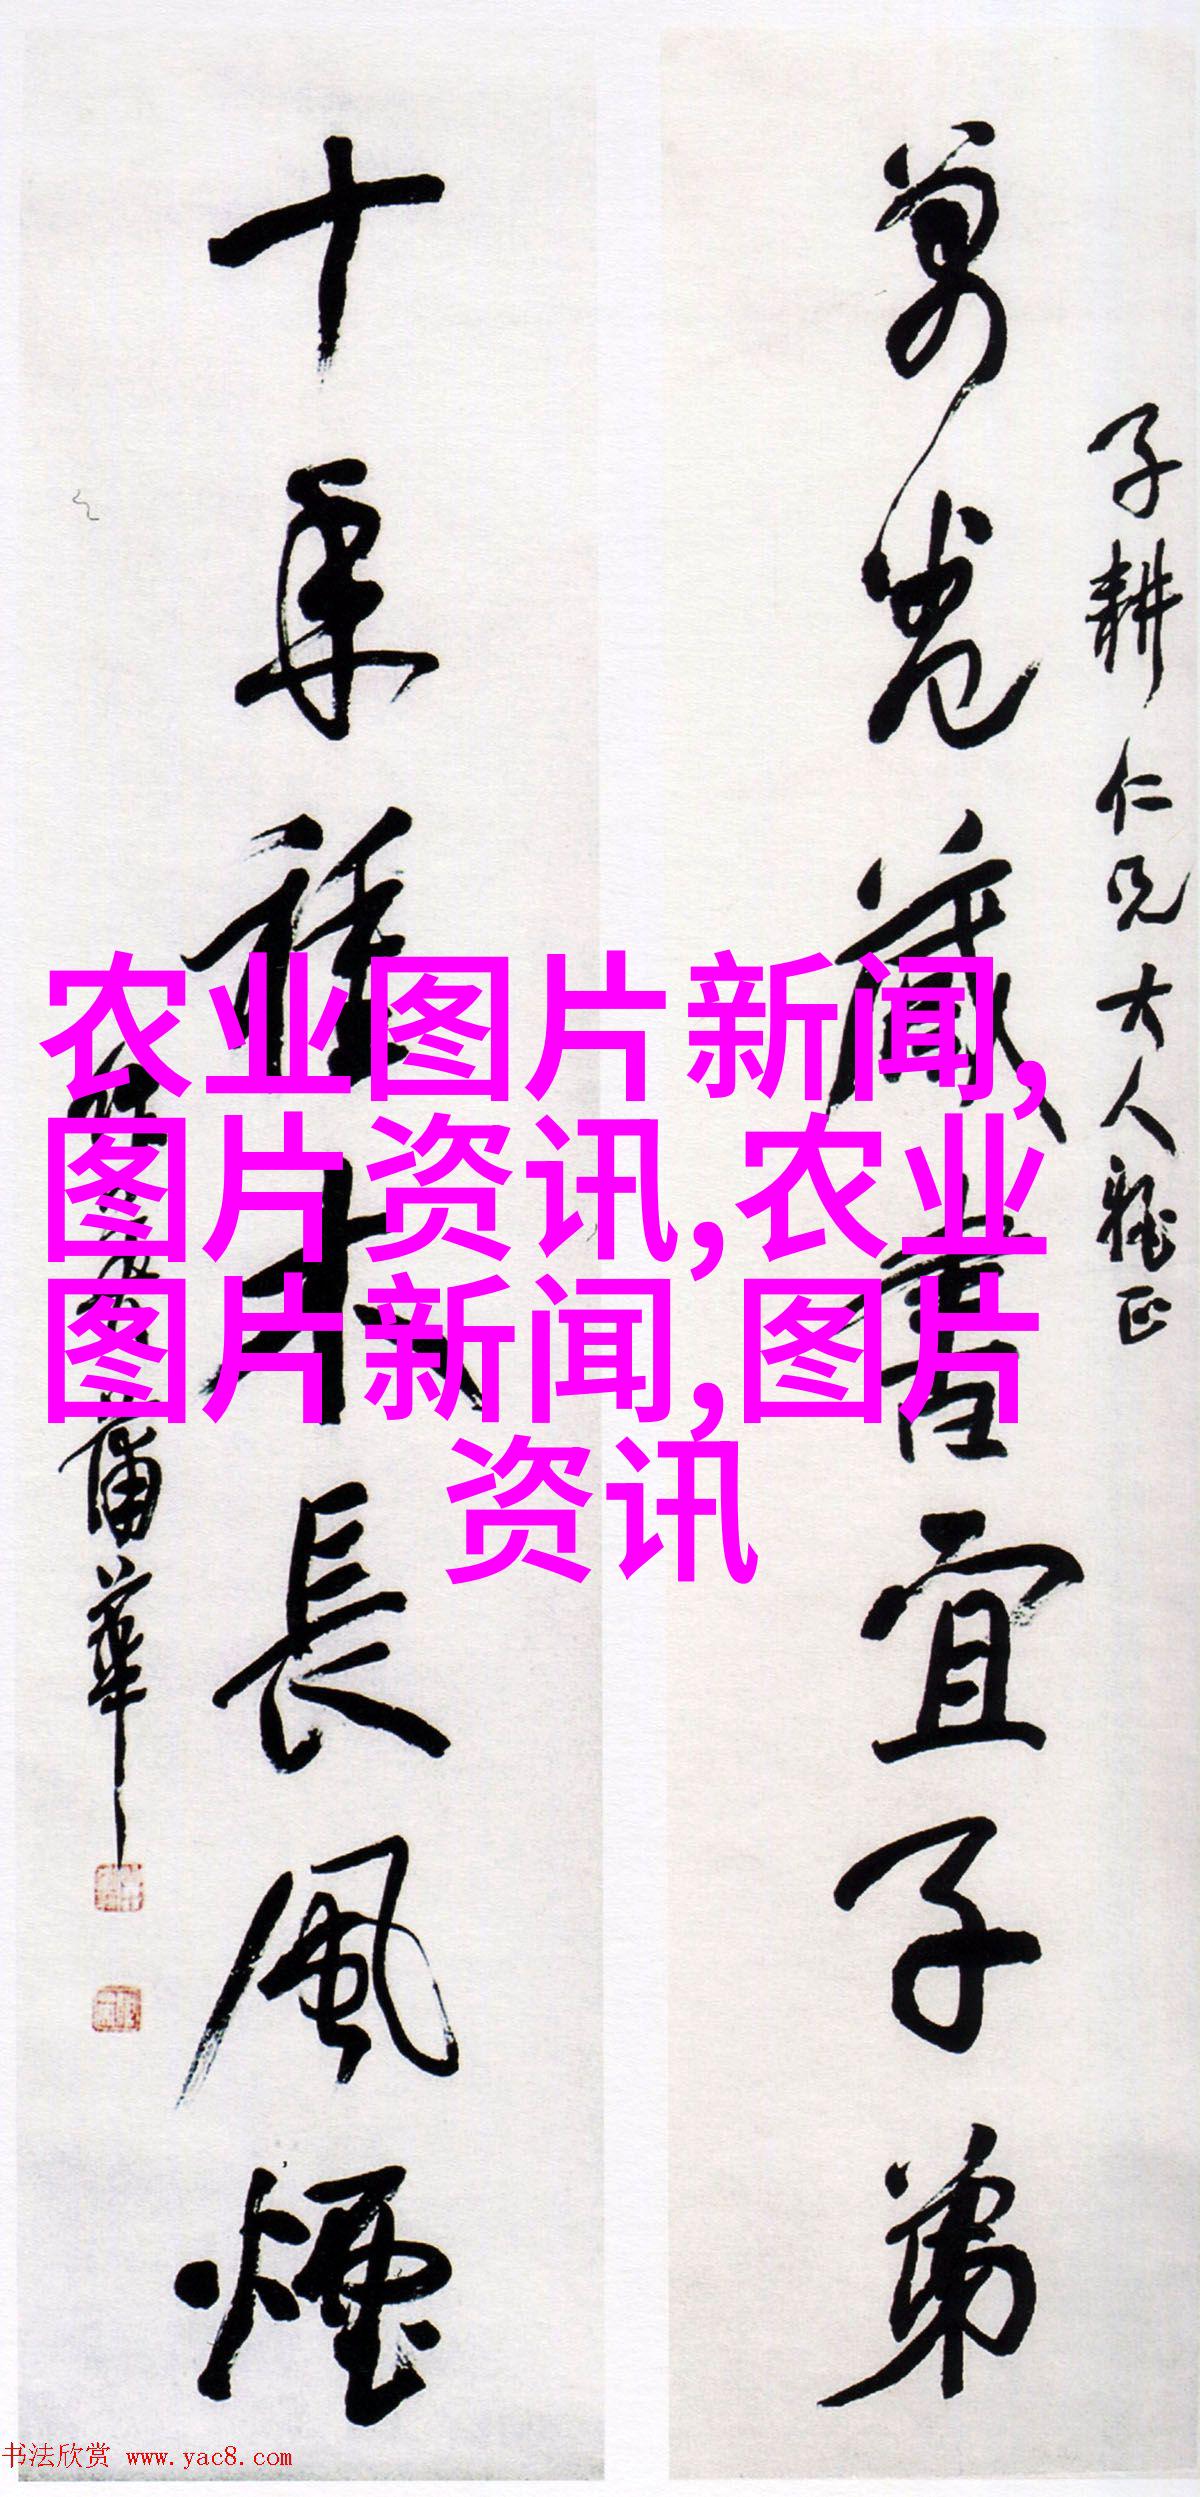 子耕仁兄大人雅正
萬卷藏書宜子弟
十年種木長風煙
蒲華
农业图片新闻,
图片资讯,农业
图片新闻,图片
资讯
书法欣赏 www.yac8.com